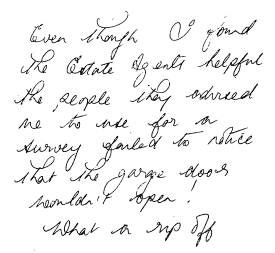 Even though I found
the Estate Agents helpful
the people they advised
me to use for a
survey failed to notice
that the garage doors
wouldn't open!
What a rip off